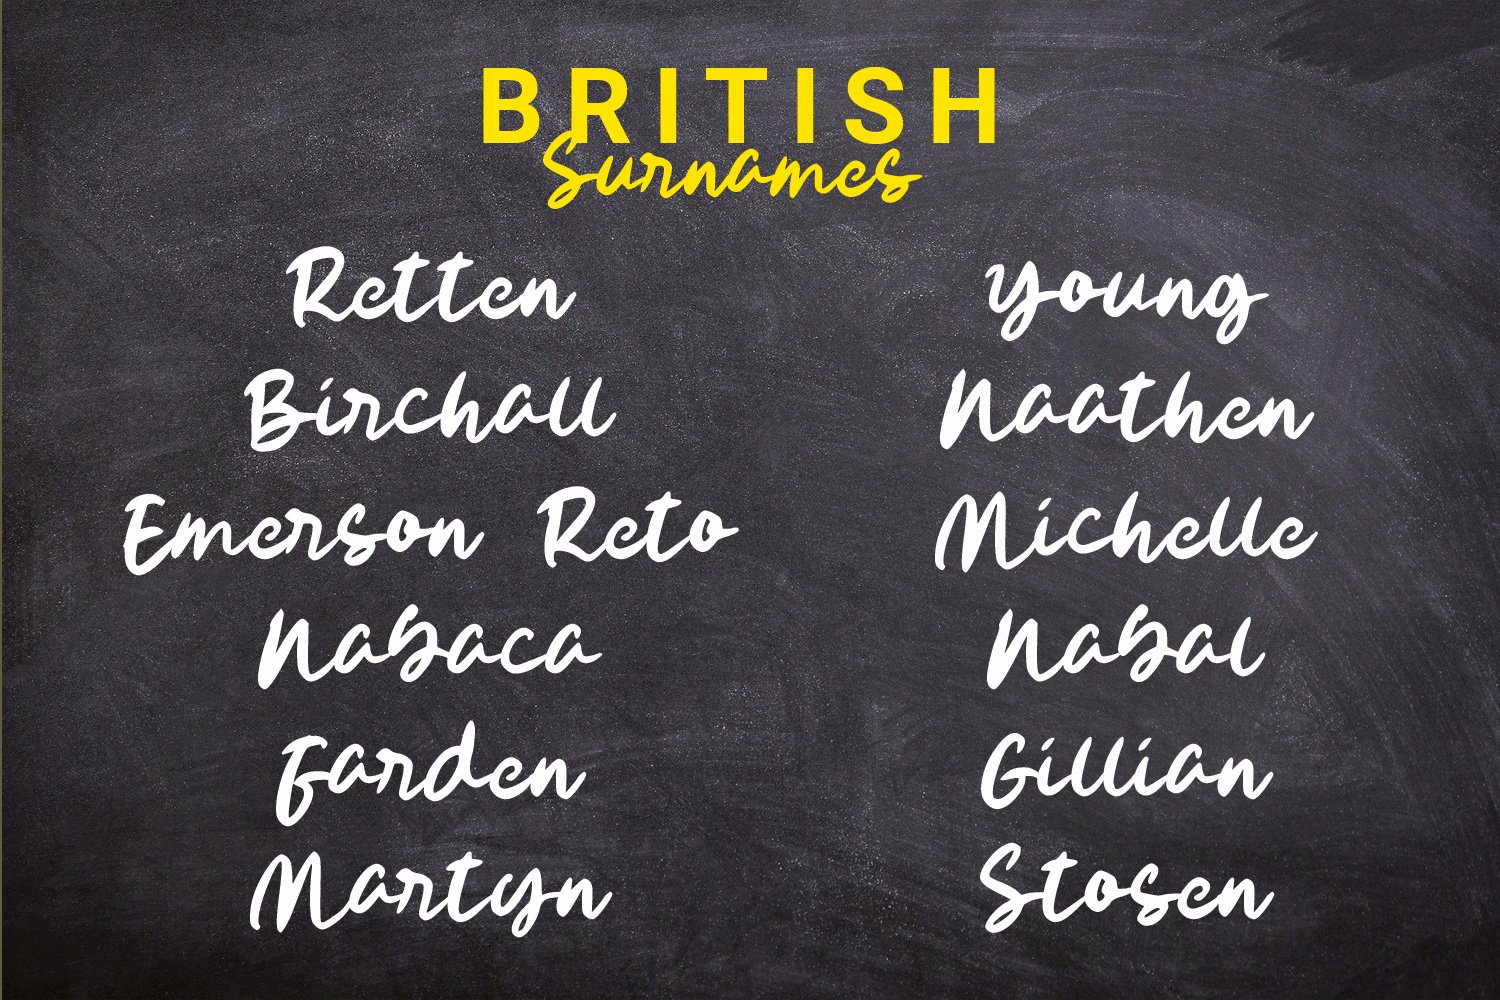 BRITISH
Surnames
Retten
Birchall
Emerson Reto
Nabaca
Farden
Martyn
Young
Naathen
Michelle
Nabal
Gillian
Stosen